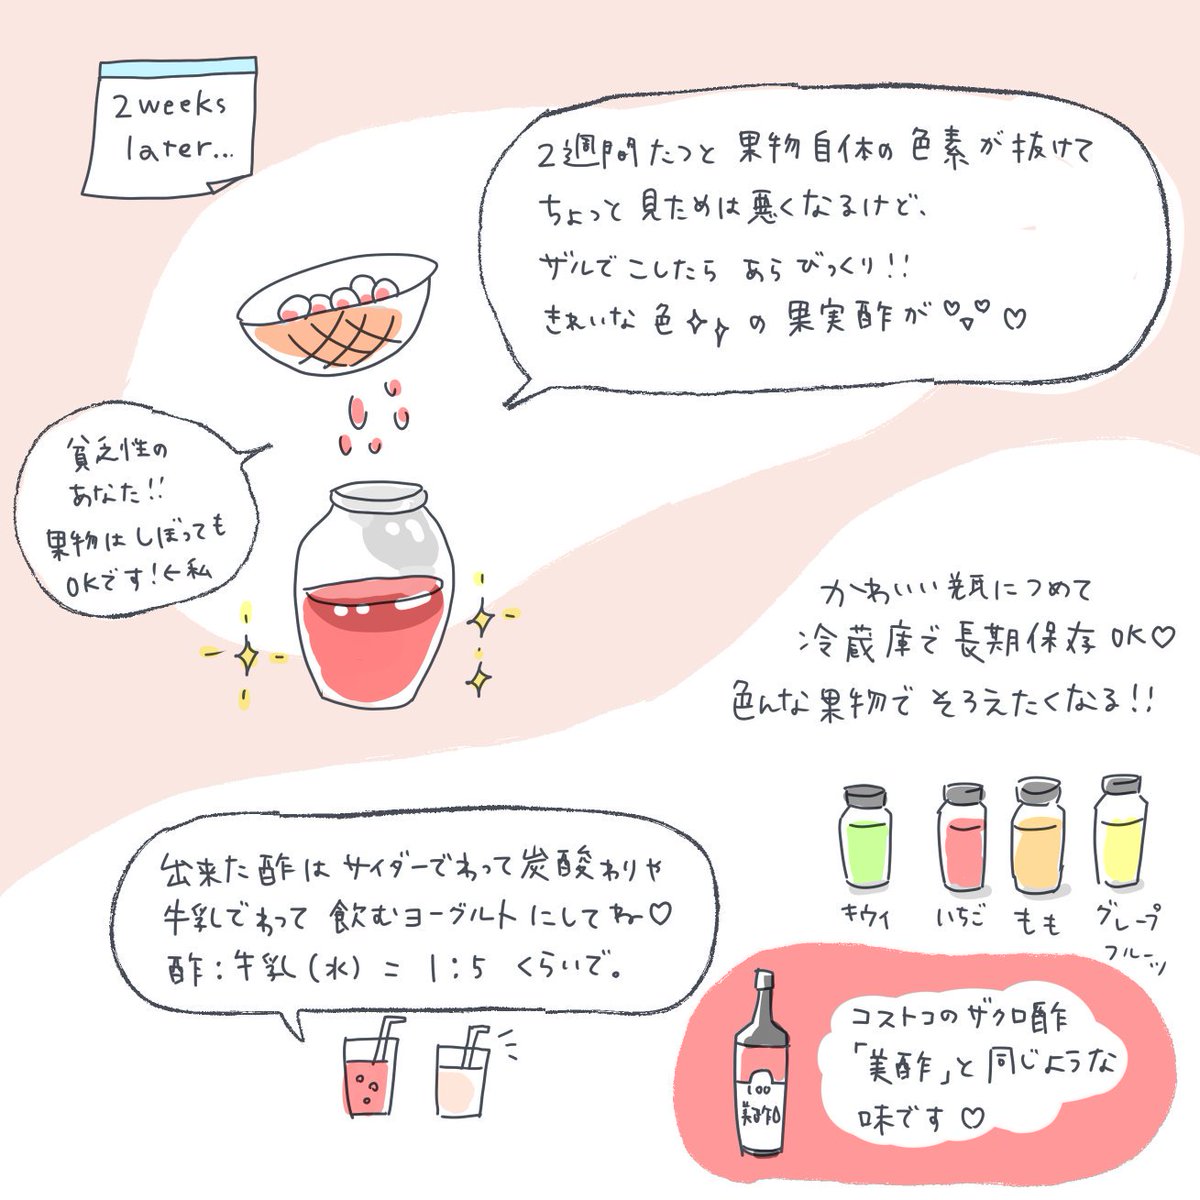 2weeks
later...
2週間たつと 果物自体の色素が抜けて
ちょっと見ためは悪くなるけど、
ザルでこしたら あらびっくり!!
きれいな色の果実酢が♡♡♡
貧乏性の
あなた!!
果物はしぼっても
OKです!←私
かわいい瓶につめて
冷蔵庫で長期保存OK♡
色んな果物でそろえたくなる!!
キウイ
いちご
もも
グレープ
フルーツ
出来た酢はサイダーでわって炭酸わりや
牛乳でわって飲むヨーグルトにしてね♡
酢:牛乳(水)=1:5 くらいで。
100
美酢
コストコのザクロ酢
「美酢」と同じような
味です♡